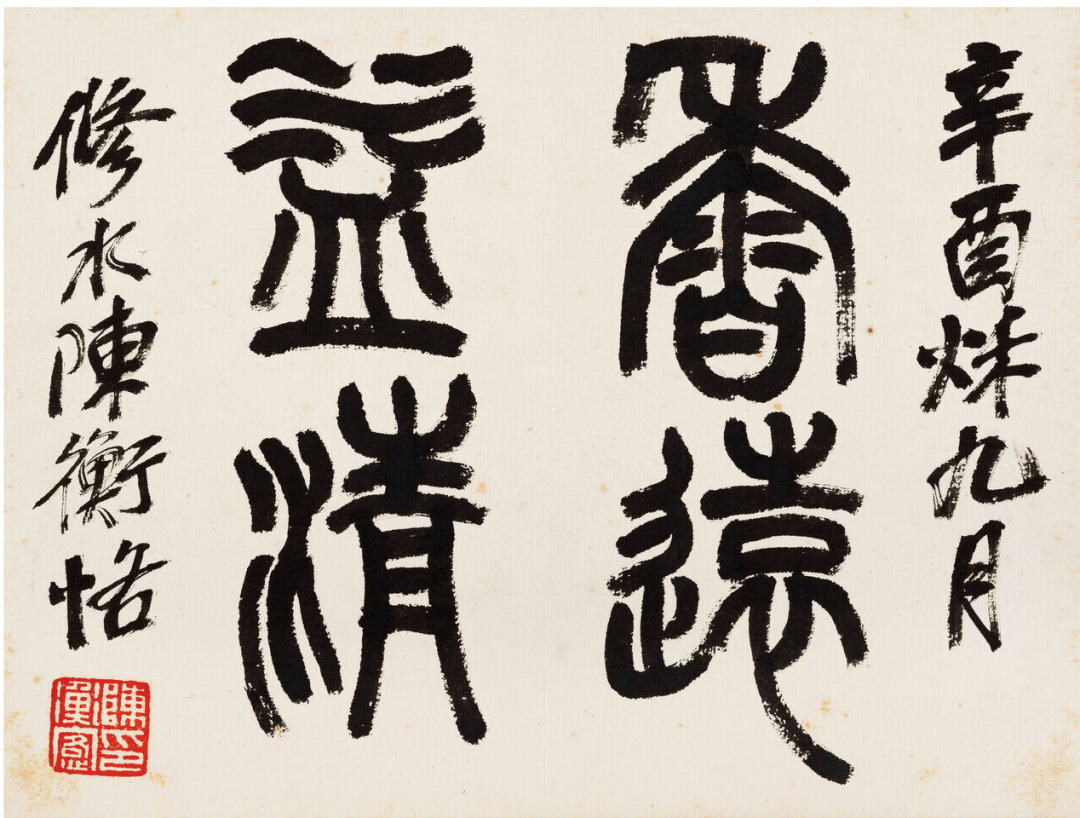 辛酉烌九月
香遠
益清
修水陳衡恪
陳印
衡恪